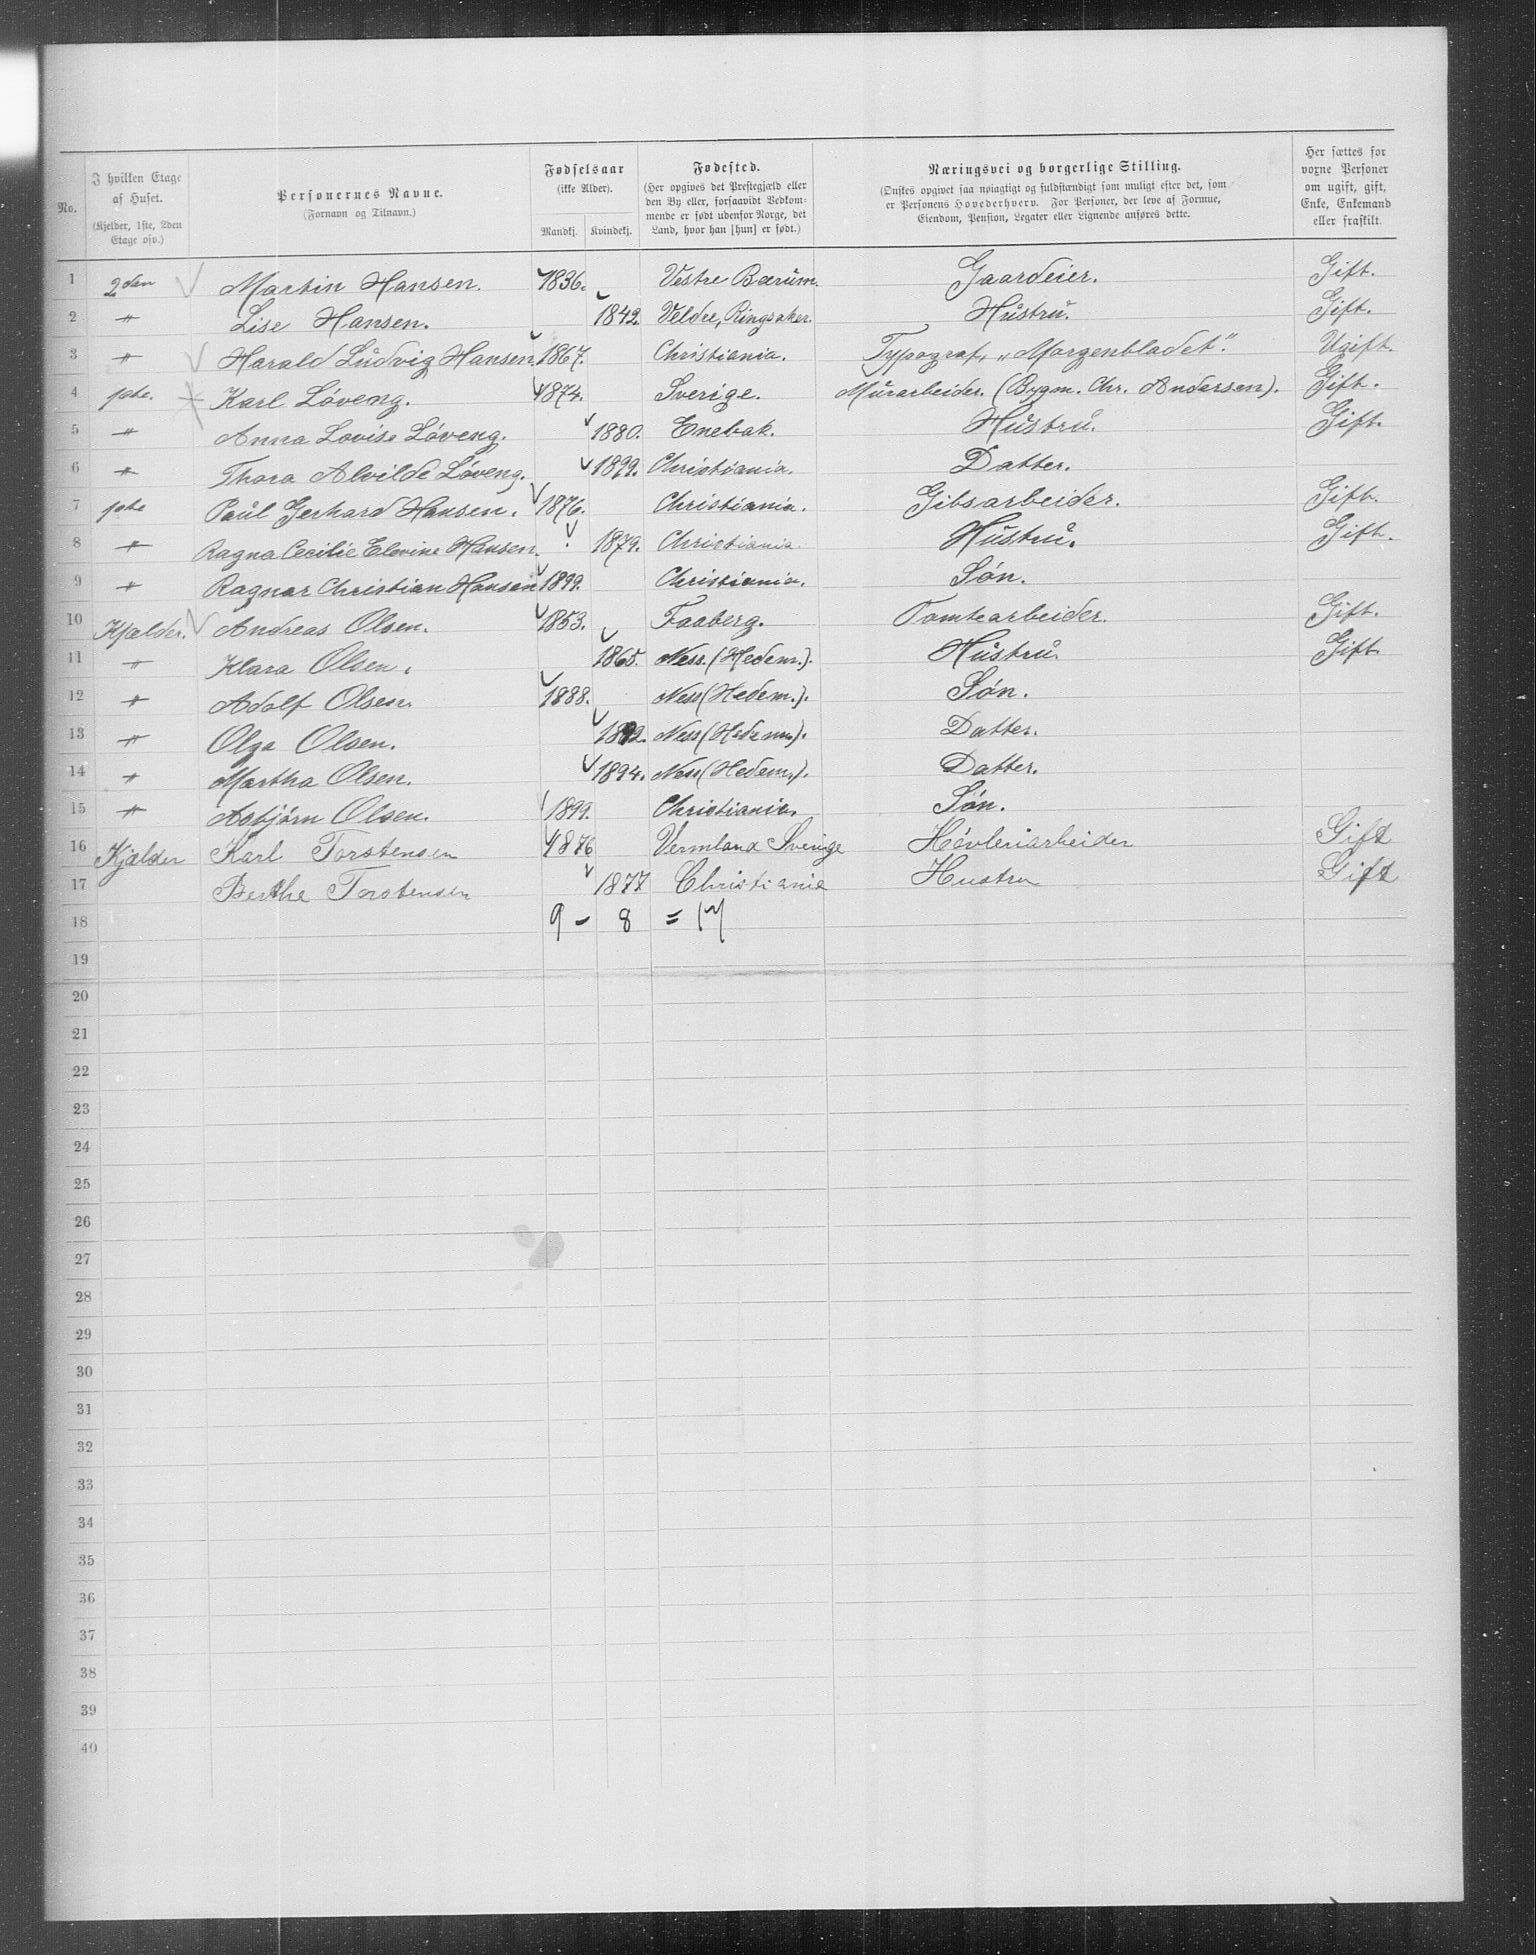 No.
I hvilken Etage af Huset.
(Kjelder, 1ste, 2den Etage osv.)
Personernes Navne.
(Fornavn og Tilnavn.)
Fødselsaar
(ikke Alder).
Mandkj. Kvindekj.
Fødested.
(Her opgives det Prestegjæld eller den By eller, forsaavidt Vedkommende er født udenfor Norge, det Land, hvor han [hun] er født.)
Næringsvei og borgerlige Stilling.
(Ønskes opgivet saa nøiagtigt og fuldstændigt som muligt efter det, som er Personens Hovederhverv. For Personer, der leve af Formue, Eiendom, Pension, Legater eller Lignende anføres dette.
Her sættes for voxne Personer om ugift, gift, Enke, Enkemand eller fraskilt.
1 2den Martin Hansen. 1836. Vestre Bærüm. Gaardeier. Gift.
2 " Lise Hansen. 1842. Veldre, Ringsaker. Hüstrü. Gift.
3 " Harald Lüdvig Hansen 1867. Christiania. Typograf, „Morgenbladet". Ugift.
4 1ste. Karl Løveng. 1874. Sverige. Mürarbeider. (Bygm. Chr. Andersen). Gift.
5 " Anna Lovise Løveng. 1880. Enebak. Hüstrü. Gift.
6 " Thora Alvilde Løveng. 1899. Christiania. Datter.
7 1ste Paül Gerhard Hansen. 1876. Christiania. Gibsarbeider. Gift.
8 " Ragna Cecilie Elevine Hansen. 1879. Christiania. Hüstrü. Gift.
9 " Ragnar Christian Hansen 1899. Christiania. Søn.
10 Kjælder. Andreas Olsen. 1853. Faaberg. Tomtearbeider. Gift.
11 " Klara Olsen. 1865. Ness. (Hedem.). Hüstrü. Gift
12 " Adolf Olsen 1888. Ness (Hedem.). Søn.
13 " Olga Olsen. 1892. Ness (Hedem.). Datter.
14 " Martha Olsen. 1894. Ness (Hedem.). Datter.
15 " Asbjørn Olsen. 1899. Christiania. Søn.
16 Kjælder Karl Torstensen 1876 Vermland Sverige Høvleriarbeider Gift
17 Berthe Torstensen 1877 Christiania Hustru Gift
18 9 - 8 = 17
19
20
21
22
23
24
25
26
27
28
29
30
31
32
33
34
35
36
37
38
39
40